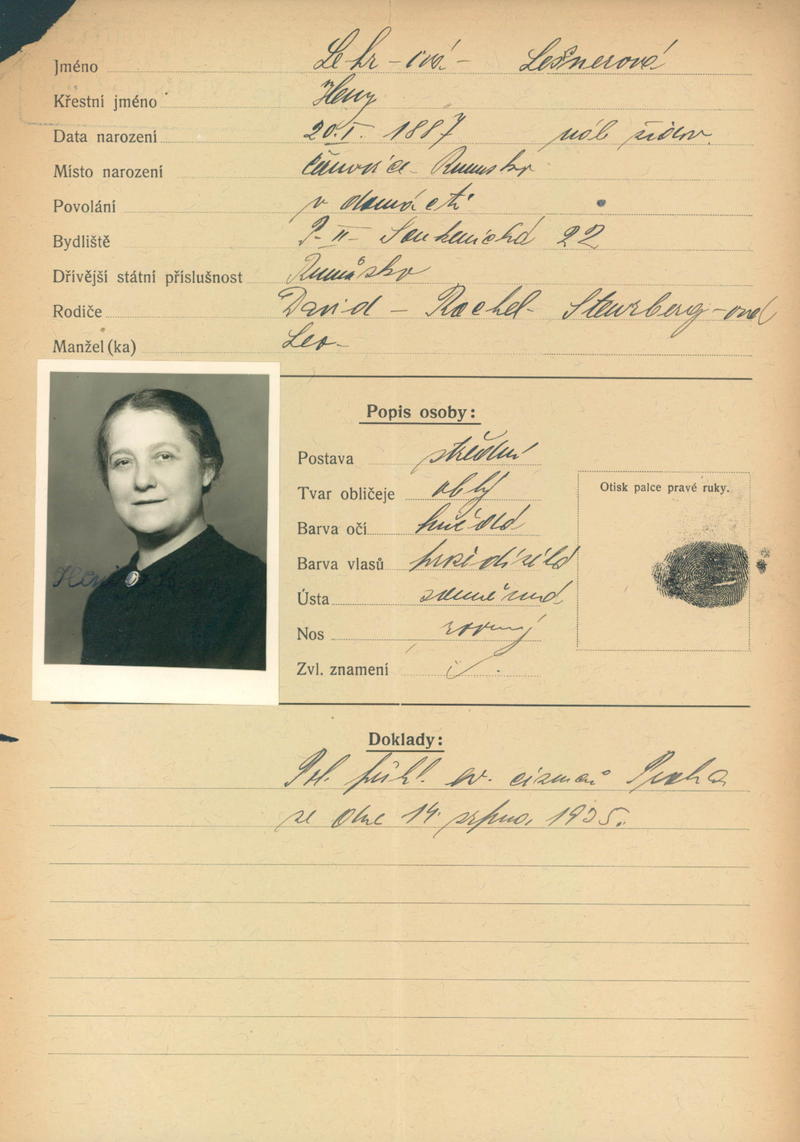 Jméno Lehr-ová- Lešnerová
Křestní jméno Heny
Data narození 20.I. 1887 náb židov.
Místo narození Rumusko
Povolání v domácti
Bydliště P-II- Soukenická 22
Dřívější státní příslušnost Rumusko
Rodiče David - Rachel- Sternberg-ová
Manžel (ka) Leo-
Popis osoby:
Postava střední
Tvar obličeje oblý
Barva očí hnědá
Barva vlasů
Ústa souměrná
Nos rovný
Zvl. znamení
Otisk palce pravé ruky.
Doklady:
Pol. přihl. ev. cizinců Praha
ze dne 14. srpna, 1935.